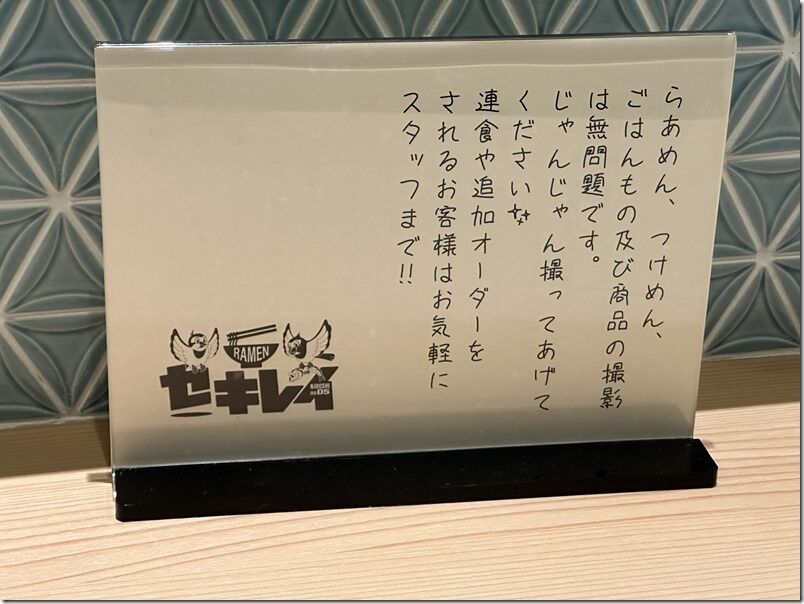 らあめん、つけめん、
ごはんもの及び商品の撮影
は無問題です。
じゃんじゃん撮ってあげて
ください✨
連食や追加オーダーを
されるお客様はお気軽に
スタッフまで!!
RAMEN
セキレイ